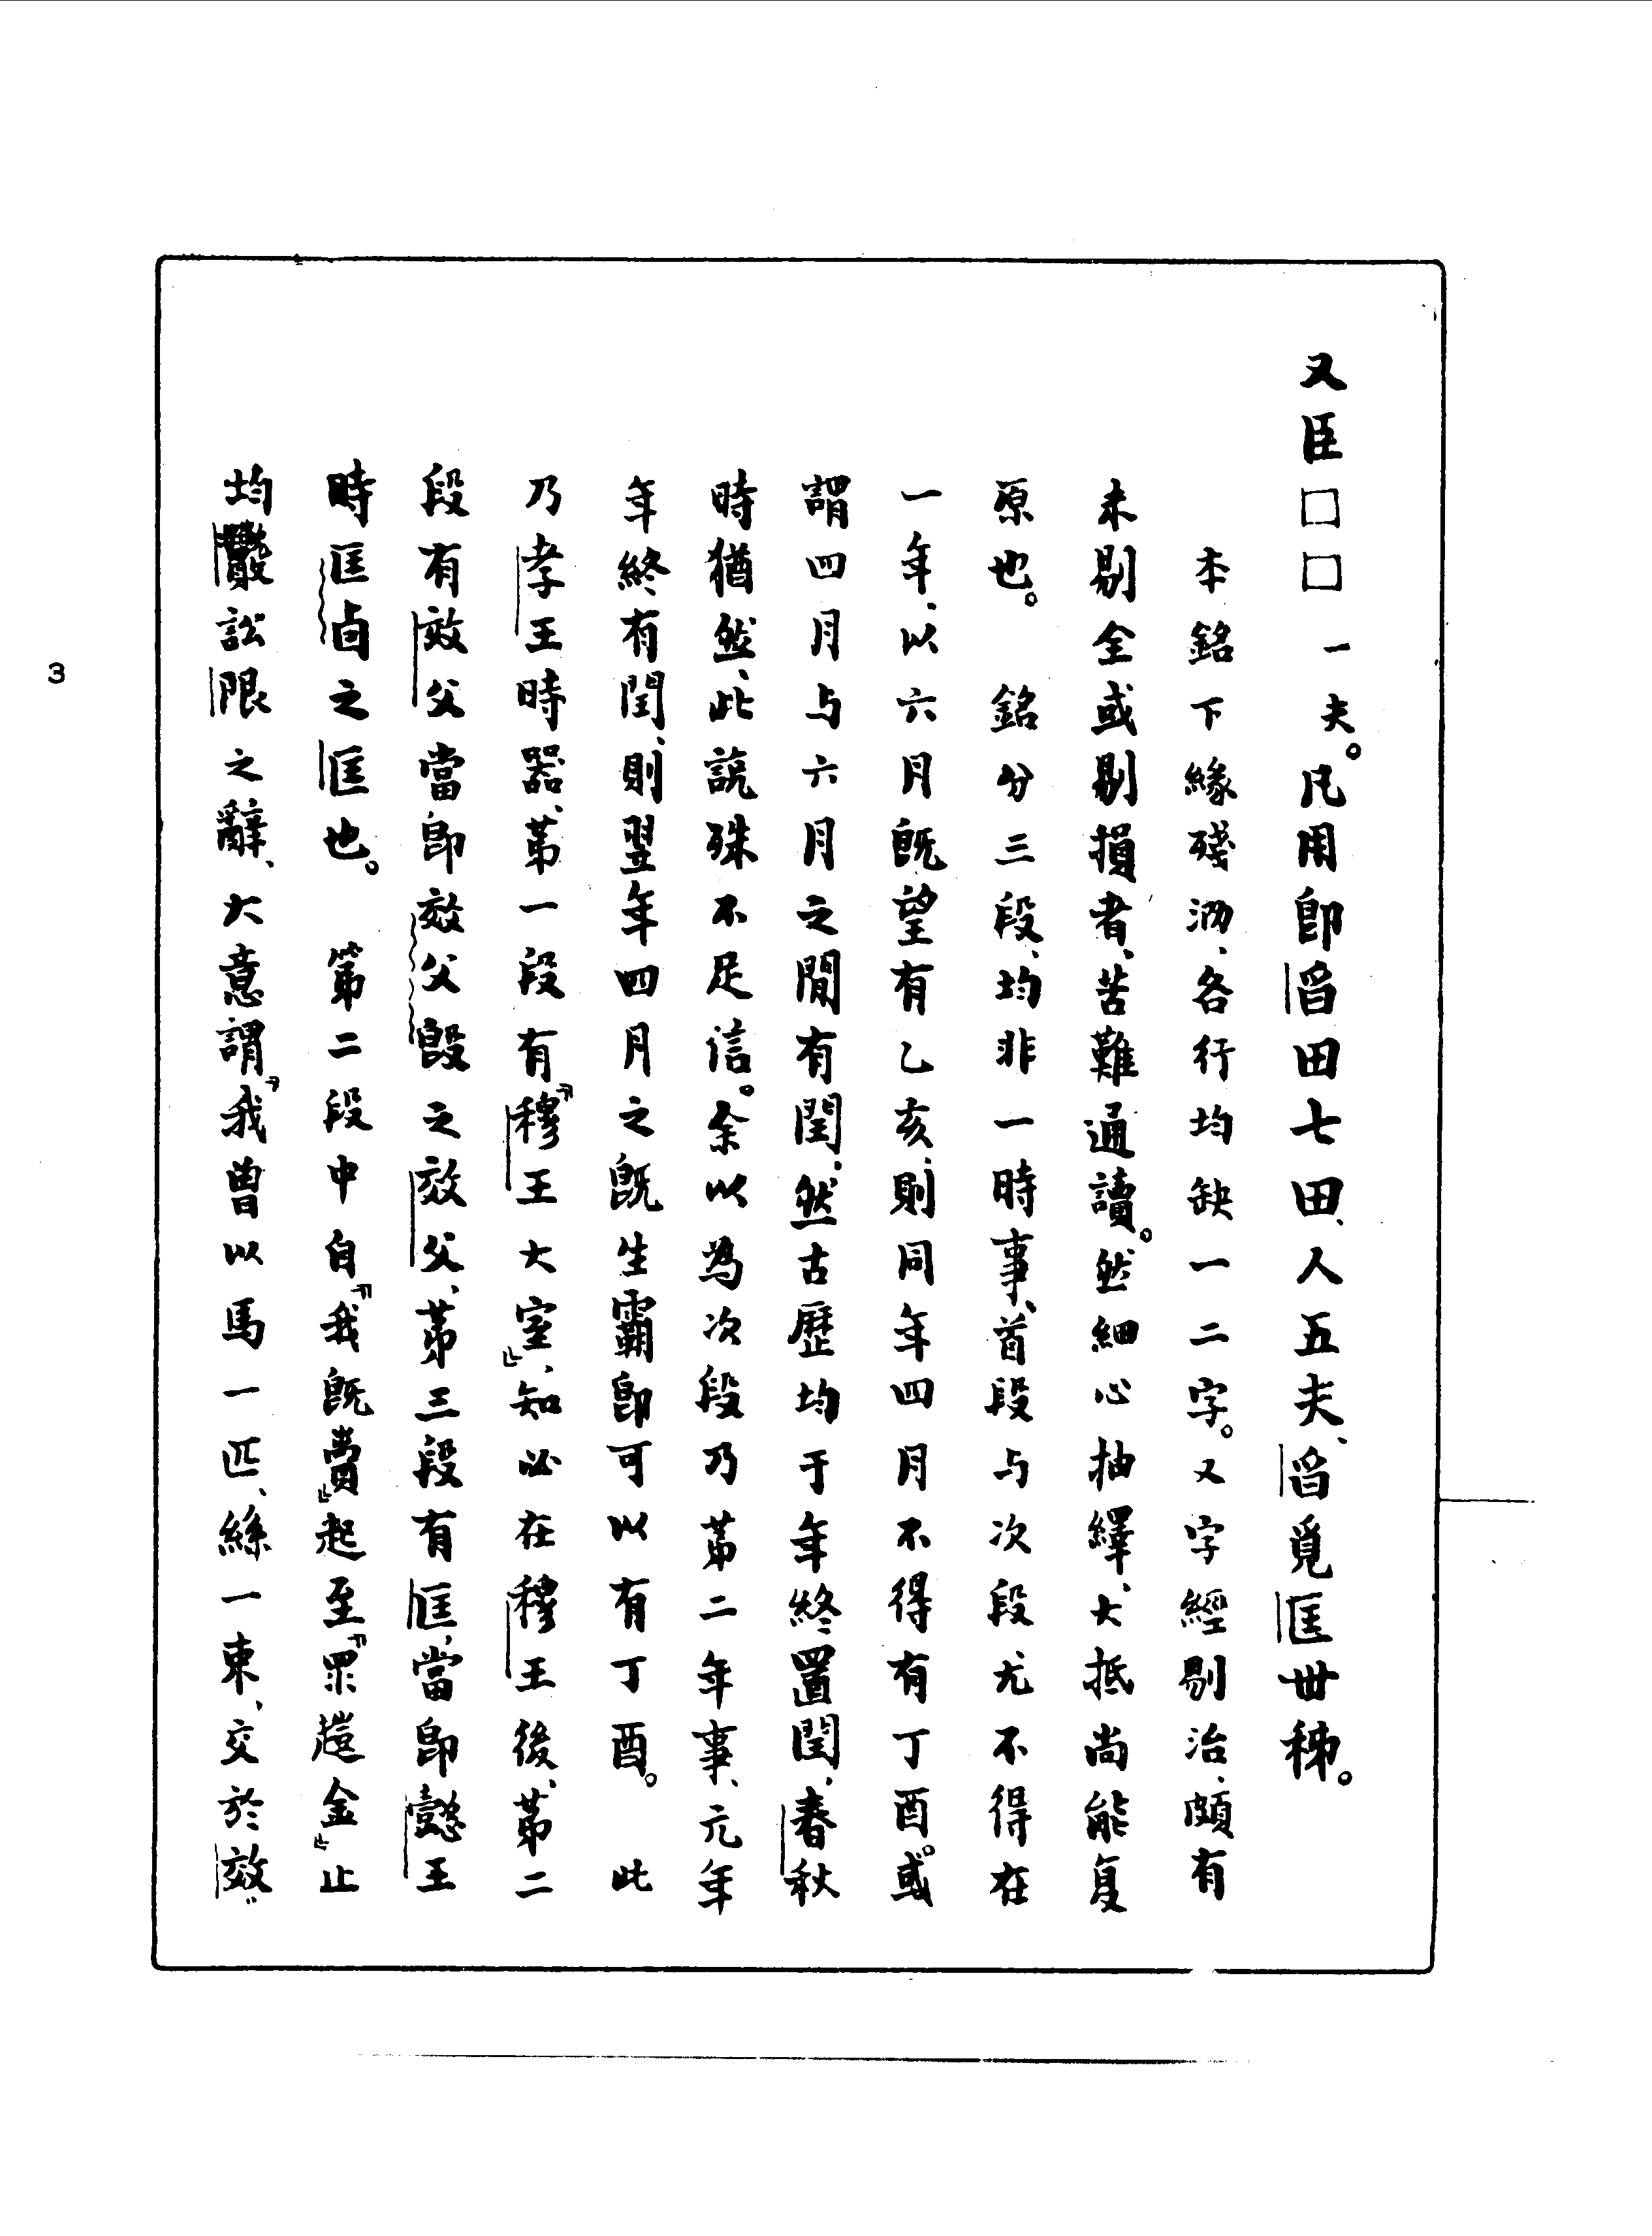 又臣□□一夫。凡用即曶田七田、人五夫、曶覓匡卅秭。
本銘下緣殘泐、各行均缺一二字。又字經剔治、頗有
未剔全或剔損者、苦難通讀。然細心抽繹、大抵尚能復
原也。　銘分三段、均非一時事、首段与次段尤不得在
一年、以六月既望有乙亥、則同年四月不得有丁酉。或
謂四月与六月之閒有閏、然古歷均于年終置閏、春秋
時猶然、此說殊不足信。余以為次段乃苐二年事、元年
年終有閏、則翌年四月之既生霸即可以有丁酉。　此
乃孝王時器、苐一段有『穆王大室』、知必在穆王後、苐二
段有效父當即效父𣪘之效父、苐三段有匡、當即懿王
時匡卣之匡也。　第二段中自『我既賣』起至『眾趩金』止
均訟限之辭、大意謂『我曾以馬一匹、絲一束、交於效
3